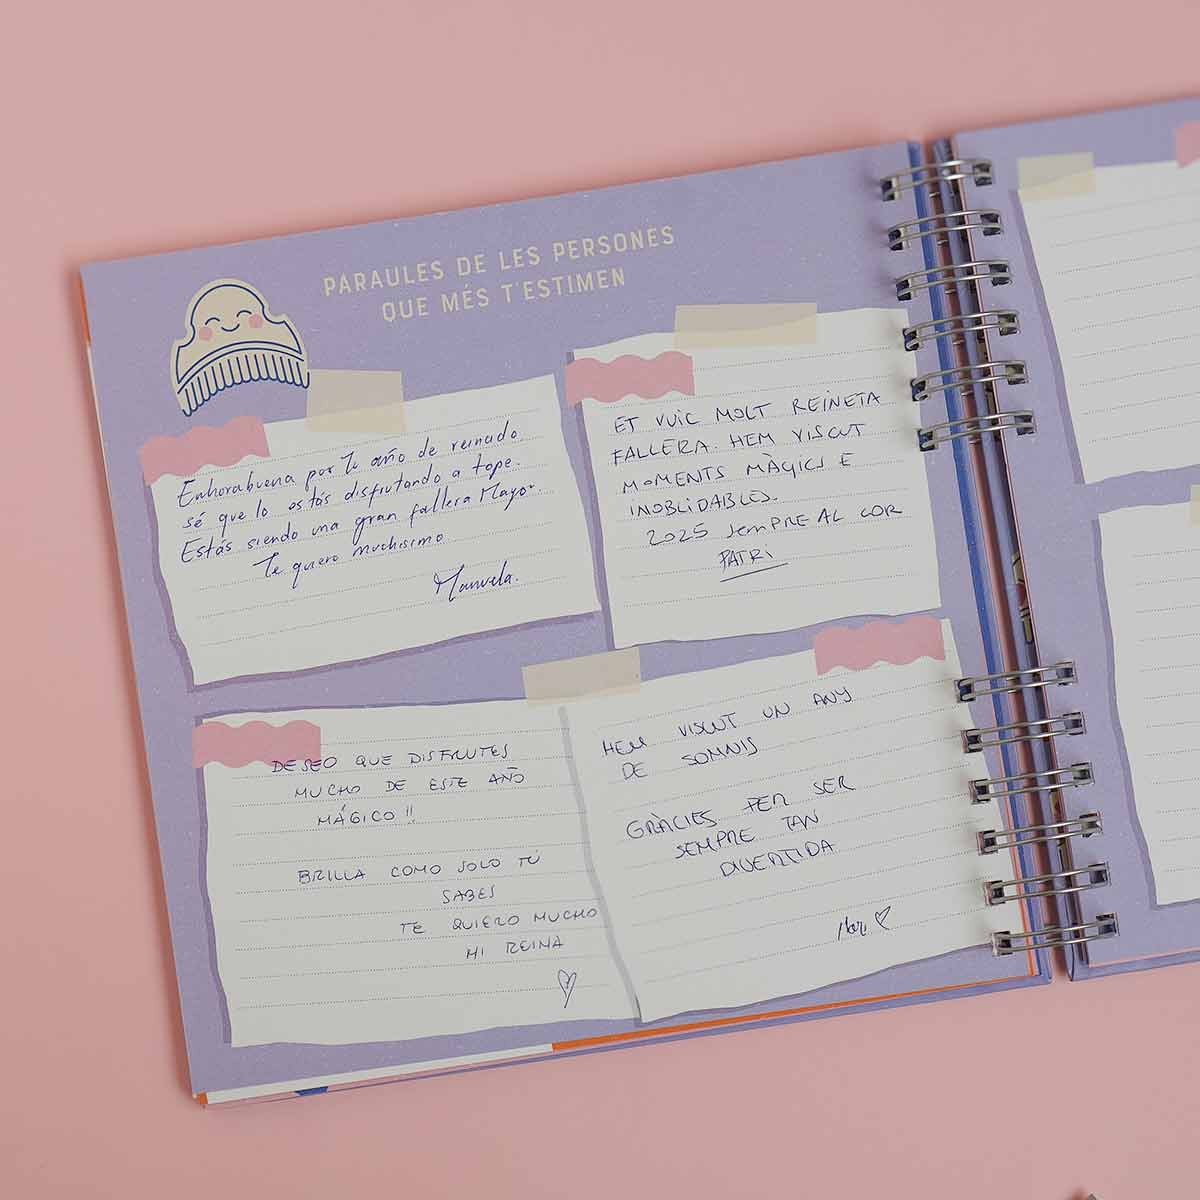 PARAULES DE LES PERSONES
QUE MÉS T'ESTIMEN
Enhorabuena por tu año de reinado.
sé que lo estás disfrutando a tope.
Estás siendo una gran fallera Mayor.
Te quiero muchísimo
Manuela.
ET VUIC MOLT REINETA
FALLERA. HEM VISCUT
MOMENTS MÀGICS E
INOBLIDABLES.
2025 SEMPRE AL COR
PATRI
DESEO QUE DISFRUTES
MUCHO DE ESTE AÑO
MÁGICO !!
BRILLA COMO SOLO TÚ
SABES
TE QUIERO MUCHO
MI REINA
HEM VISCUT UN ANY
DE SOMNIS
GRÀCIES PER SER
SEMPRE TAN
DIVERTIDA